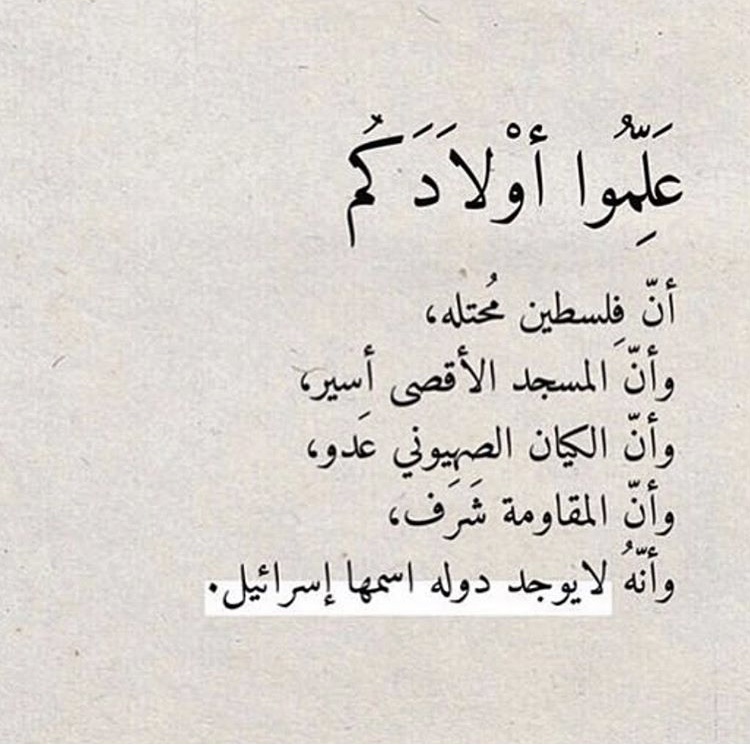 عَلِّمُوا أوْلاَدَكُم
أنّ فِلسطين مُحتله،
وأنّ المسجد الأقصى أسير،
وأنّ الكيان الصهيوني عَدو،
وأنّ المقاومة شَرَف،
وأنّهُ لايوجد دوله اسمها إسرائيل.